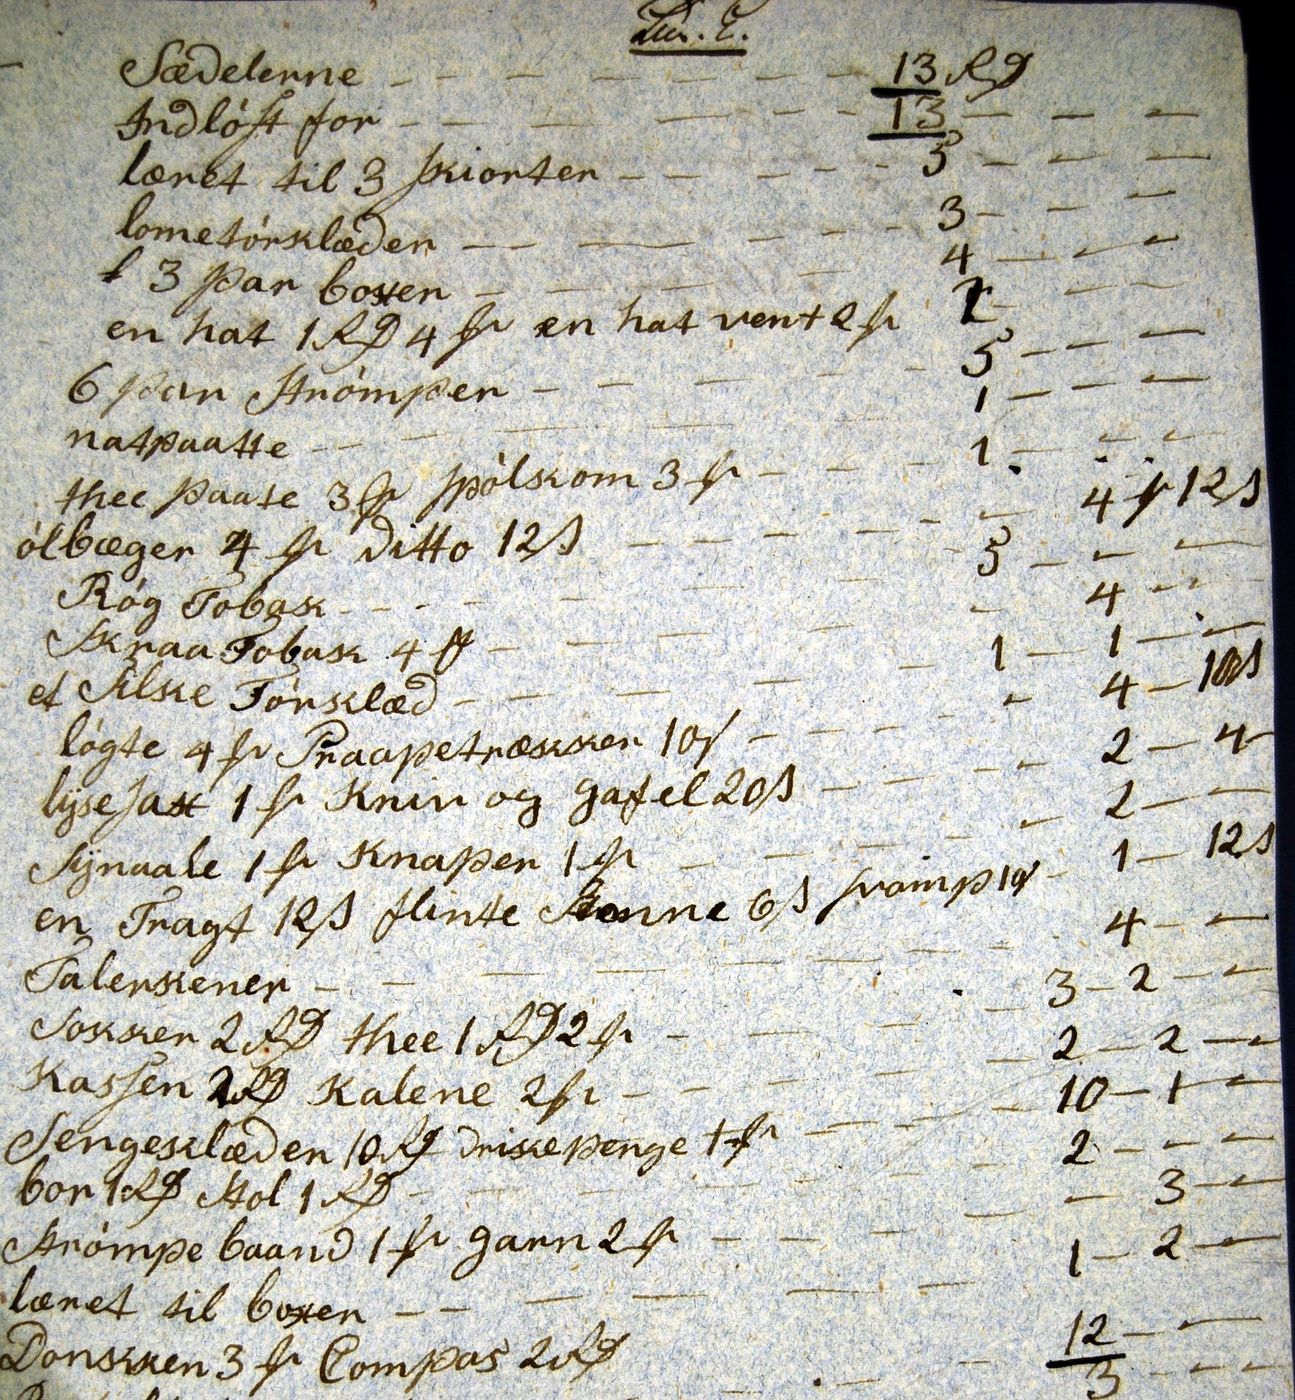 Litr. E.
Sædelerne - - - - - - - 13 RD
Indløst for - - - - - 13 - - -
læret til 3 skiorter - - - - - 5 - - -
lometørklæder - - - - - 3 - - -
3 par boxer - - - - 4 - - -
en hat 1 RD 4 sk en hat vent 2 sk - - -
6 par strømper - - - - - 5 - - -
natpaatte - - - - - 1 - - -
thee paate 3 sk spølskom 3 sk - - - 1 - - -
ølbæger 4 sk ditto 12 s - - - - - 4 sk 12 s
Røg Tobak - - - - - 5 - - -
Skraa Tobask 4 - - - - - 4 - -
et silske Tørsklæd - - - - - 1 - 1 - -
løgte 4 sk Praapetrækker 10 s - - - - 4 - 10 s
lysesaxt 1 sk Kniv og gafel 20 s - - - - 2 - 4
Synaale 1 sk Knaper 1 sk - - - - 2 - -
en Tragt 12 s flinte Stenne 6 s svamp 10 s - 1 - 12 s
Talerkener - - - - - 4 - -
Sokker 2 RD thee 1 RD 2 sk - - - 3 - 2 - -
Kassen 2 RD Kalene 2 sk - - - 2 - 2 - -
Sengesklæder 10 RD driskepenge 1 sk - - - 10 - 1 - -
bor 1 RD Stol 1 RD - - - - 2 - - -
strømpe baand 1 sk garn 2 sk - - - - 3 - -
læret til boxer - - - - - 1 - 2 - -
Donsker 3 sk Compas 2 RD 12 - -
3 - -